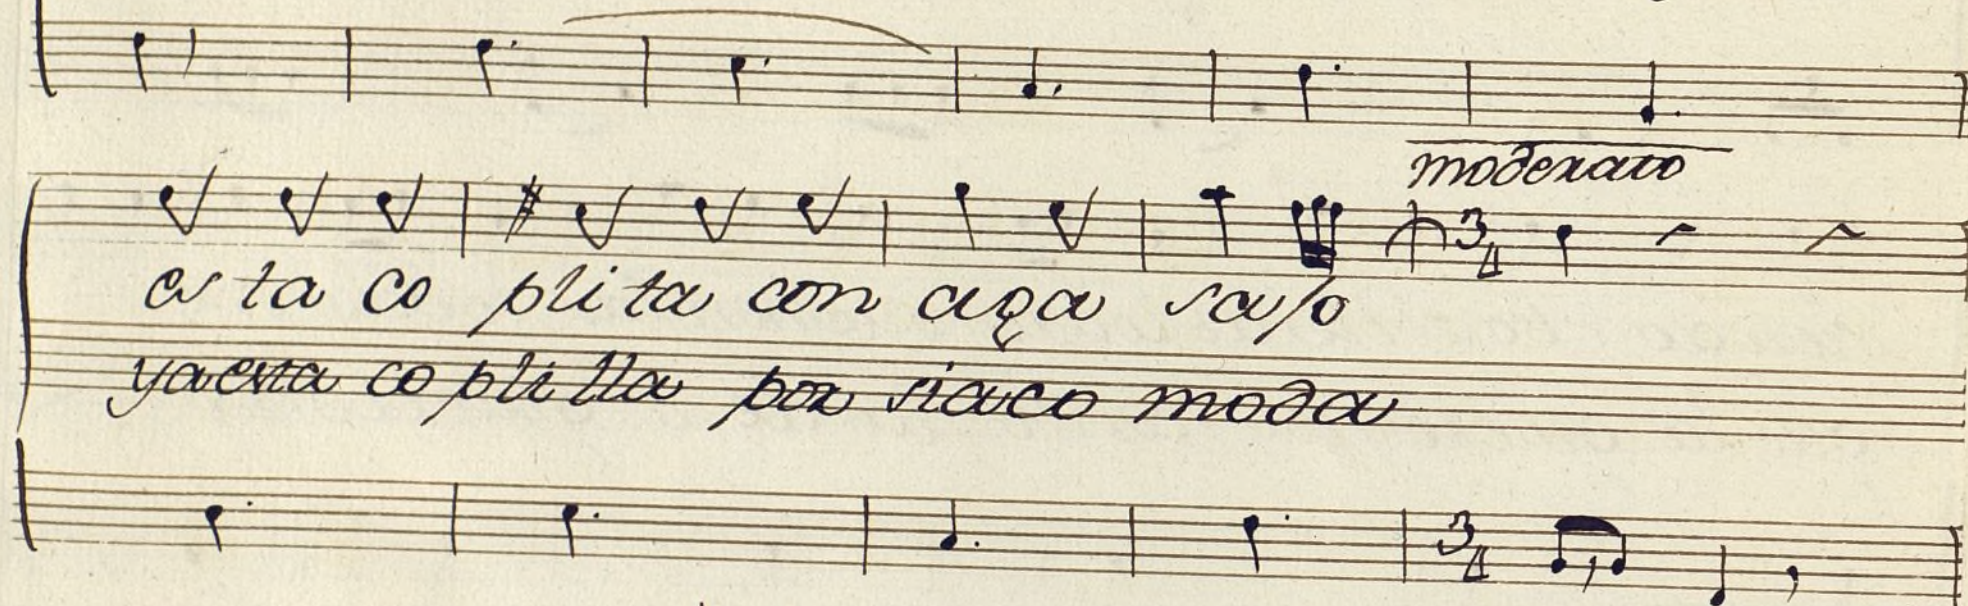 moderato
3/4
es ta co pli ta con aga sajo
yaesta co pli lla por siaco moda
3/4